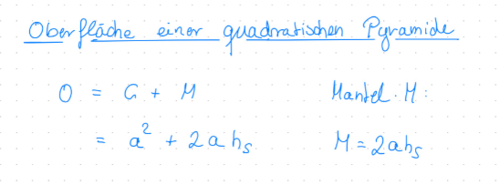 Oberfläche einer quadratischen Pyramide
O = G + M
Mantel M:
= a² + 2ahₛ
M = 2ahₛ